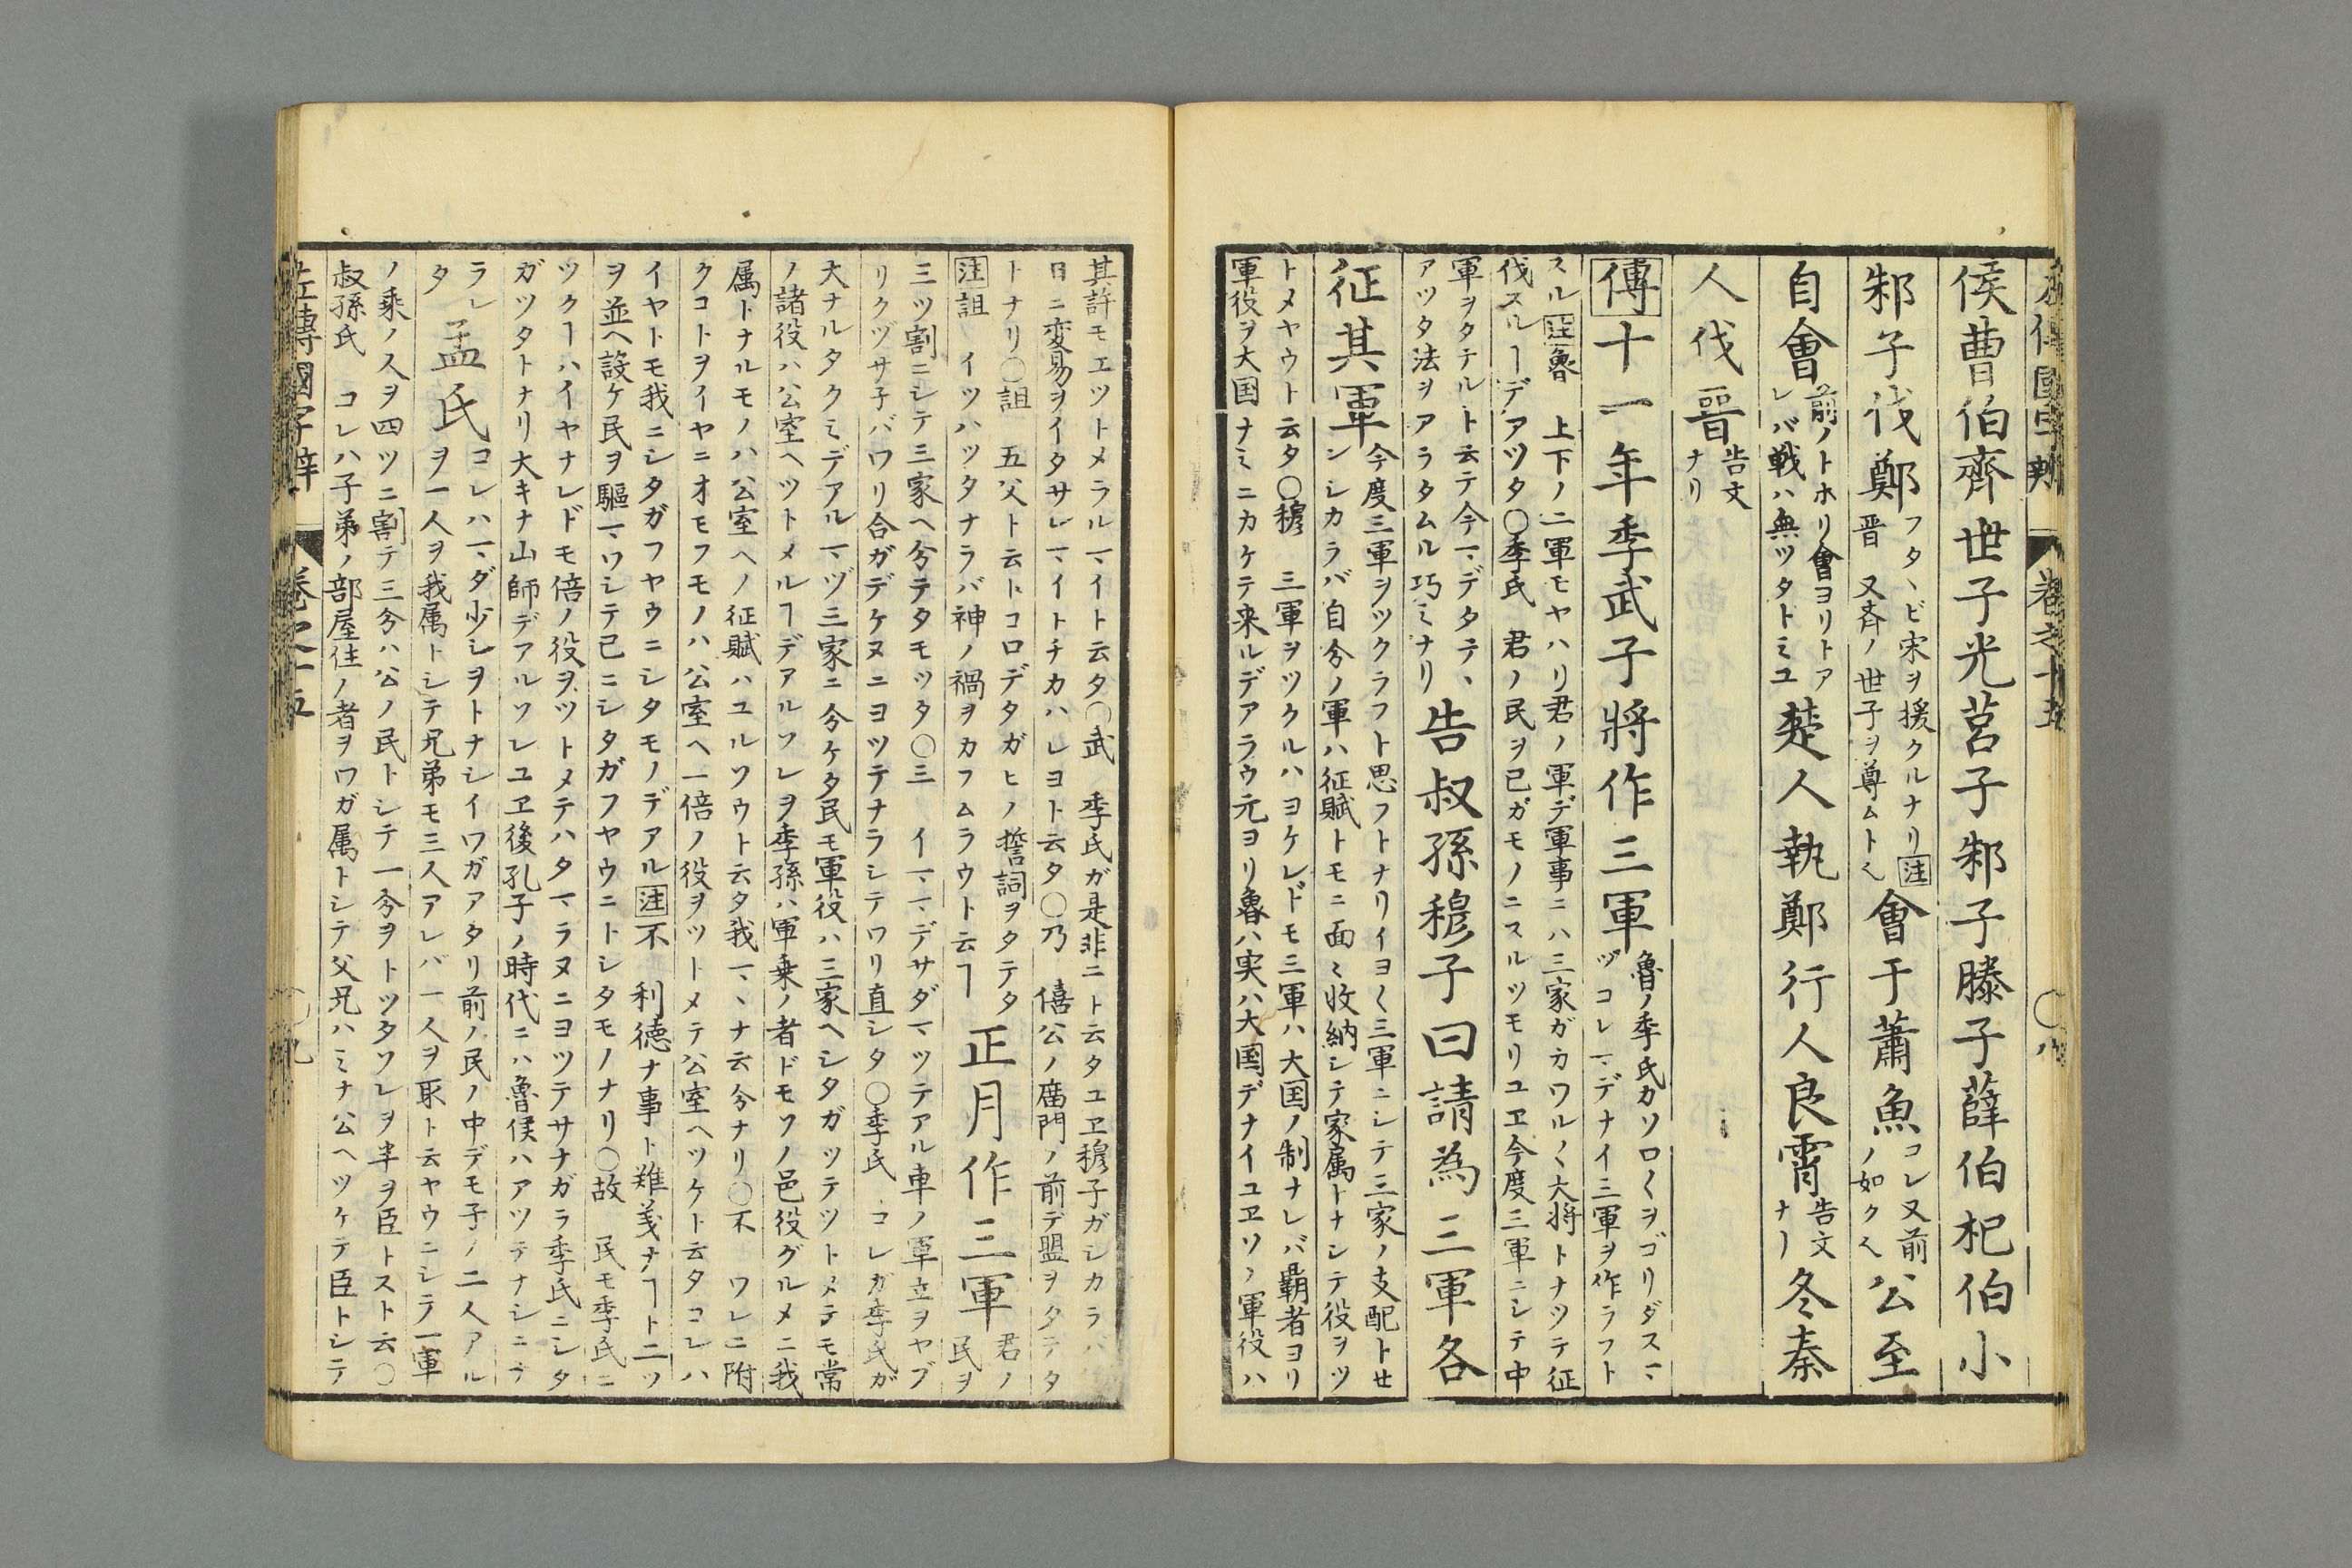 左傳國字辨 卷之十五 〇八
侯曹伯齊世子光莒子邾子滕子薛伯杞伯小
邾子伐鄭
フタヽビ宋ヲ援クルナリ注
晋 又斉ノ世子ヲ尊ムト
會于蕭魚
コレ又前
ノ如ク
公至
自會
前ノトホリ會ヨリトア
レバ戦ハ無ツタトミユ
楚人執鄭行人良霄
告文
ナリ
冬秦
人伐晉
告文
ナリ
傳十一年季武子將作三軍
魯ノ季氏カソロ〱ヲゴリダスマ
ヅコレマデナイ三軍ヲ作ラフト
スル注魯 上下ノ二軍モヤハリ君ノ軍デ軍事ニハ三家ガカワル〱大将トナツテ征
伐スルヿデアツタ〇季氏 君ノ民ヲ已ガモノニスルツモリユヱ今度三軍ニシテ中
軍ヲタテルト云テ今マデタテヽ
アツタ法ヲアラタムル巧ミナリ
告叔孫穆子曰請為三軍各
征其軍
今度三軍ヲツクラフト思フトナリイヨ〱三軍ニシテ三家ノ支配トせ
ンシカラバ自分ノ軍ハ征賦トモニ面〻收納シテ家属トナシテ役ヲツ
トメヤウト云タ〇穆 三軍ヲツクルハヨケレドモ三軍ハ大国ノ制ナレバ覇者ヨリ
軍役ヲ大国ナミニカケテ来ルデアラウ元ヨリ魯ハ実ハ大国デナイユヱソノ軍役ハ
其許モエツトメラルマイト云タ〇武 季氏ガ是非ニト云タユヱ穆子ガシカラバ
日ニ変易ヲイタサレマイトチカハレヨト云タ〇乃 僖公ノ廟門ノ前デ盟ヲタテタ
トナリ〇詛 五父ト云トコロデタガヒノ誓詞ヲタテタ
注詛 イツハツタナラバ神ノ禍ヲカフムラウト云ヿ
正月作三軍
君ノ
民ヲ
三ツ割ニシテ三家ヘ分テタモツタ〇三 イママデサダマツテアル車ノ軍立ヲヤブ
リクヅサ子バワリ合ガデケヌニヨツテナラシテワリ直シタ〇季氏 コレガ季氏ガ
大ナルタクミデアルマヅ三家ニ分ケタ民モ軍役ハ三家ヘシタガツテツトメテモ常
ノ諸役ハ公室ヘツトメルヿデアルソレヲ季孫ハ軍乗ノ者ドモソノ邑役グルメニ我
属トナルモノハ公室ヘノ征賦ハユルソウト云タ我マヽナ云分ナリ〇不 ワレニ附
クコトヲイヤニオモフモノハ公室ヘ一倍ノ役ヲツトメテ公室ヘツケト云タコレハ
イヤトモ我ニシタガフヤウニシタモノデアル注不 利徳ナ事ト難義ナヿト二ツ
ヲ並ヘ設ケ民ヲ驅マワシテ已ニシタガフヤウニトシタモノナリ〇故 民モ季氏ニ
ツクヿハイヤナレドモ倍ノ役ヲツトメテハタマラヌニヨツテサナガラ季氏ニシタ
ガツタトナリ大キナ山師デアルソレユヱ後孔子ノ時代ニハ魯侯ハアツテナシニナ
ラレ
タ
孟氏
コレハマダ少シヲトナシイワガアタリ前ノ民ノ中デモ子ノ二人アル
ヲ一人ヲ我属トシテ兄弟モ三人アレバ一人ヲ取ト云ヤウニシテ一軍
ノ乘ノ人ヲ四ツニ割テ三分ハ公ノ民トシテ一分ヲトツタソレヲ半ヲ臣トスト云〇
叔孫氏 コレハ子弟ノ部屋住ノ者ヲワガ属トシテ父兄ハミナ公ヘツケテ臣トシテ
左傳國字辨 卷之十五 〇九